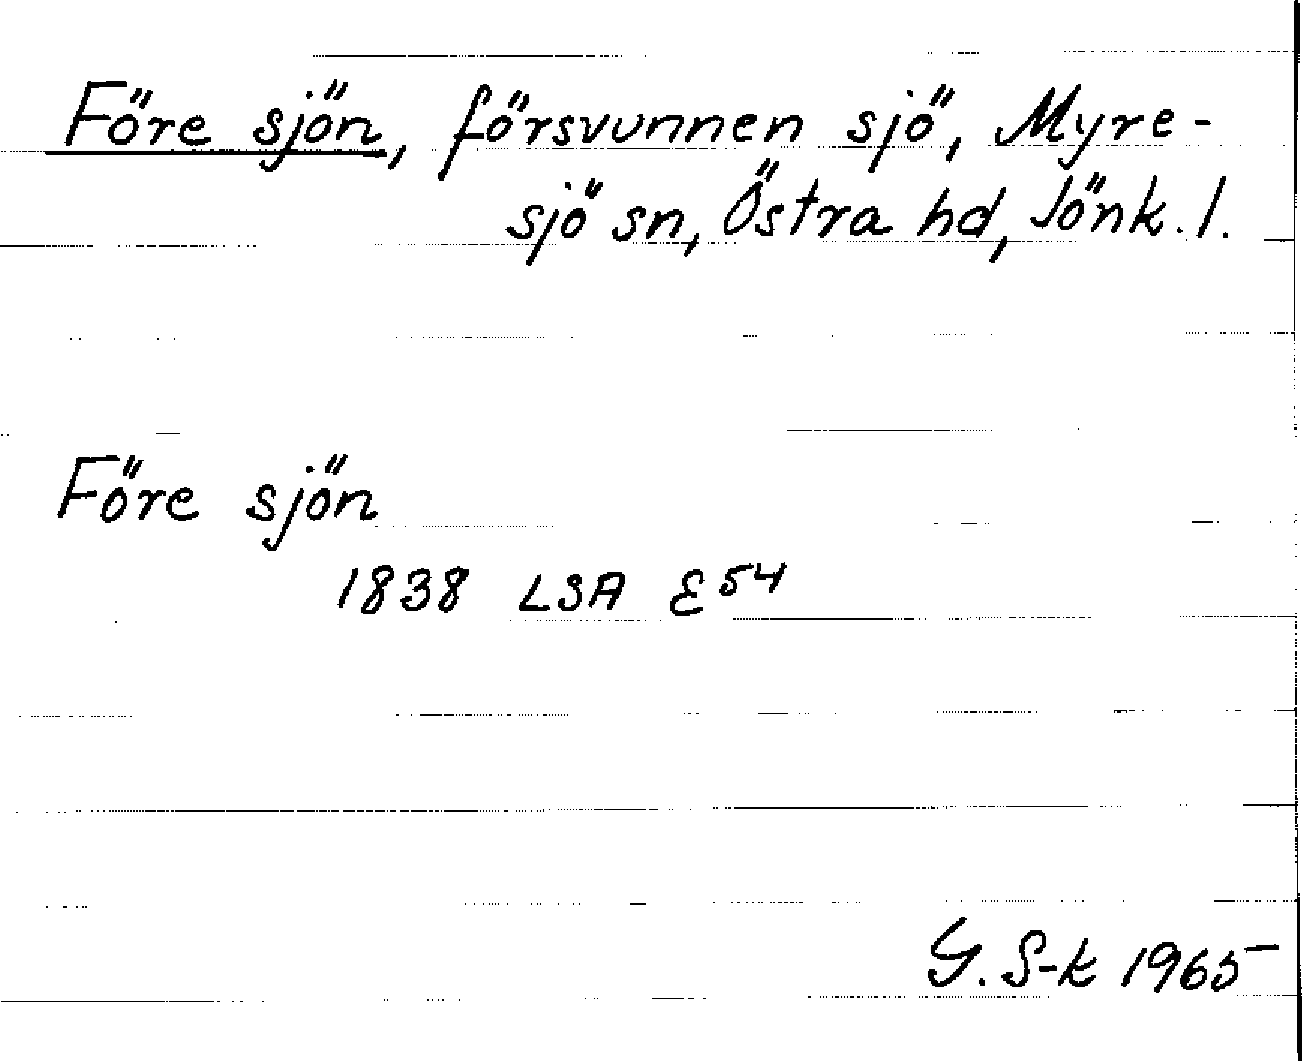 Före sjön, försvunnen sjö, Myre-
sjö sn, Östra hd, Jönk. l.
Före sjön
1838 LSA E54
G. S-k 1965